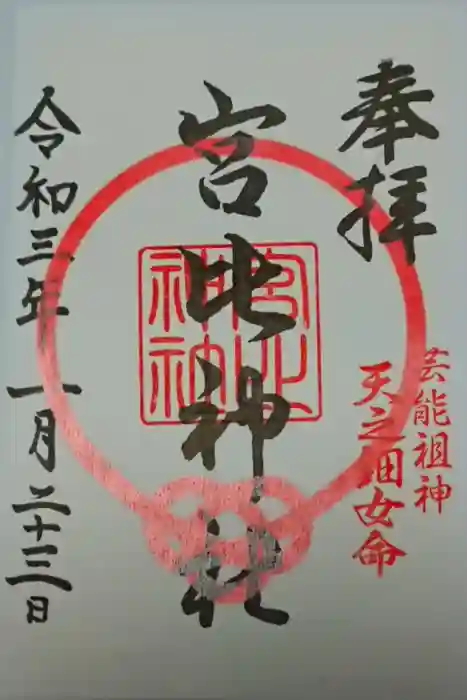 奉拝
芸能祖神
天之鈿女命
宮比神社
宮比
神社
令和三年 一月二十三日